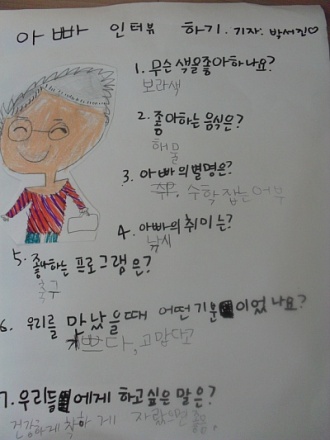 아빠 인터뷰 하기. 기자: 박서진♡
1. 무슨 색을 좋아하나요?
보라색
2. 좋아하는 음식은?
해물
3. 아빠의 별명은?
수학 잡는 어부
4. 아빠의 취미는?
낚시
5. 좋아하는 프로그램은?
축구
6. 우리를 만났을때 어떤기분이었나요?
기쁘다, 고맙다?
7. 우리들에게 하고싶은 말은?
건강하게 착하게 자랐으면 좋